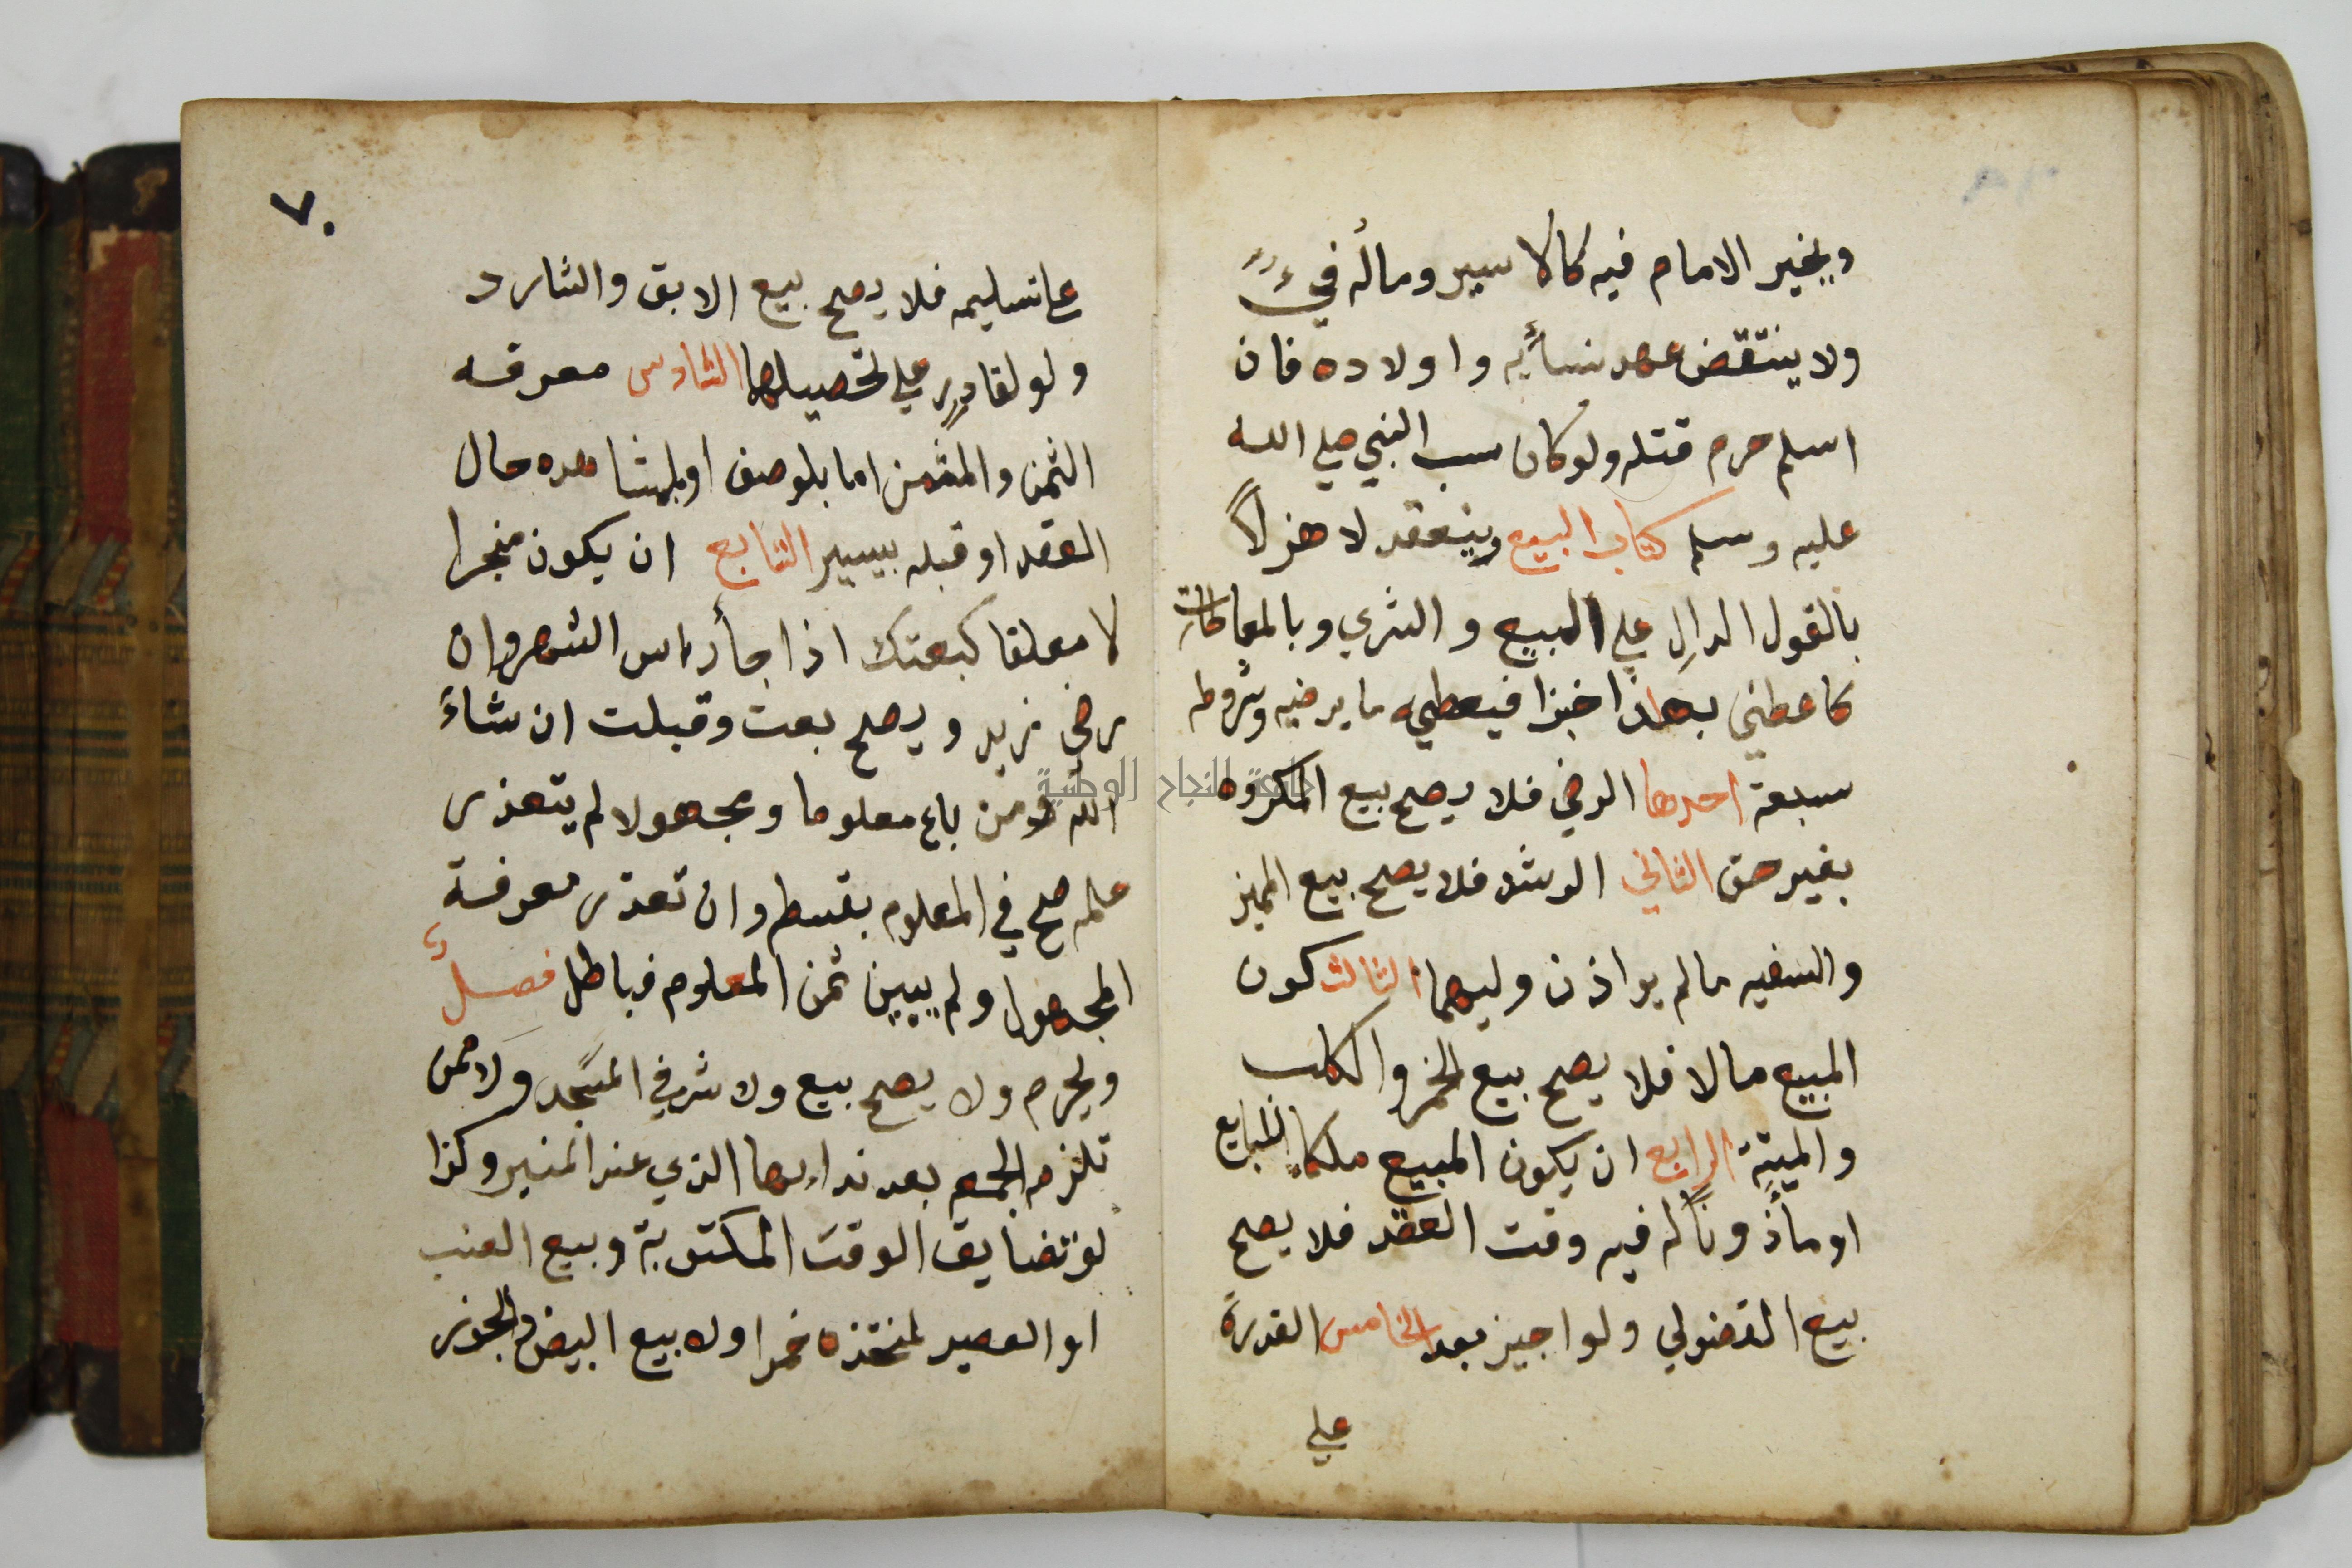 ويخير الامام فيه كالاسير وماله فيء
ولا ينتقض عهد نسائه واولاده فان
اسلم حرم قتله ولو كان سب النبي صلي الله
عليه وسلم كتاب البيع وينعقد لا هزلاً
بالقول الدالِ علي البيع والشري وبالمعاطات
كاعطني بهذا خبزا فيعطيه ما يرضيه وشروطه
سبعة احدها الرضي فلا يصح بيع المكروه
بغير حق الثاني الرشد فلا يصح بيع المميز
والسفيه مالم يواذن وليهما الثالث كون
المبيع مالا فلا يصح بيع الخمر والكلب
والميتة الرابع ان يكون المبيع ملكا للبايع
او مأذوناً له فيه وقت العقد فلا يصح
بيع الفضولي ولو اجيز بعد الخامس القدرة
علي
٧٠
علي تسليمه فلا يصح بيع الابق والشارد
ولو لقادرٍ علي تحصيلها السادس معرفة
الثمن والمثمن اما بلوصف او بلمشاهده حال
العقد او قبله بيسير السابع ان يكون منجزا
لا معلقا كبعتك اذا جأ راس الشهر وان
رضي زيد ويصح بعت وقبلت ان شاء
الله ومن باع معلوما ومجهولا لم يتعذر
علمه صح في المعلوم بقسطه وان تعذر معرفة
المجهول ولم يبين ثمن المعلوم فباطل فصلٌ
ويحرم ولا يصح بيع ولا شرا في المسجد ولا ممن
تلزمه الجمعه بعد ندايها الذي عند المنبر وكذا
لو تضايق الوقت المكتوبة وبيع العنب
او العصير لمتخذه خمرا ولا بيع البيض والجوز
جامعة النجاح الوطنية